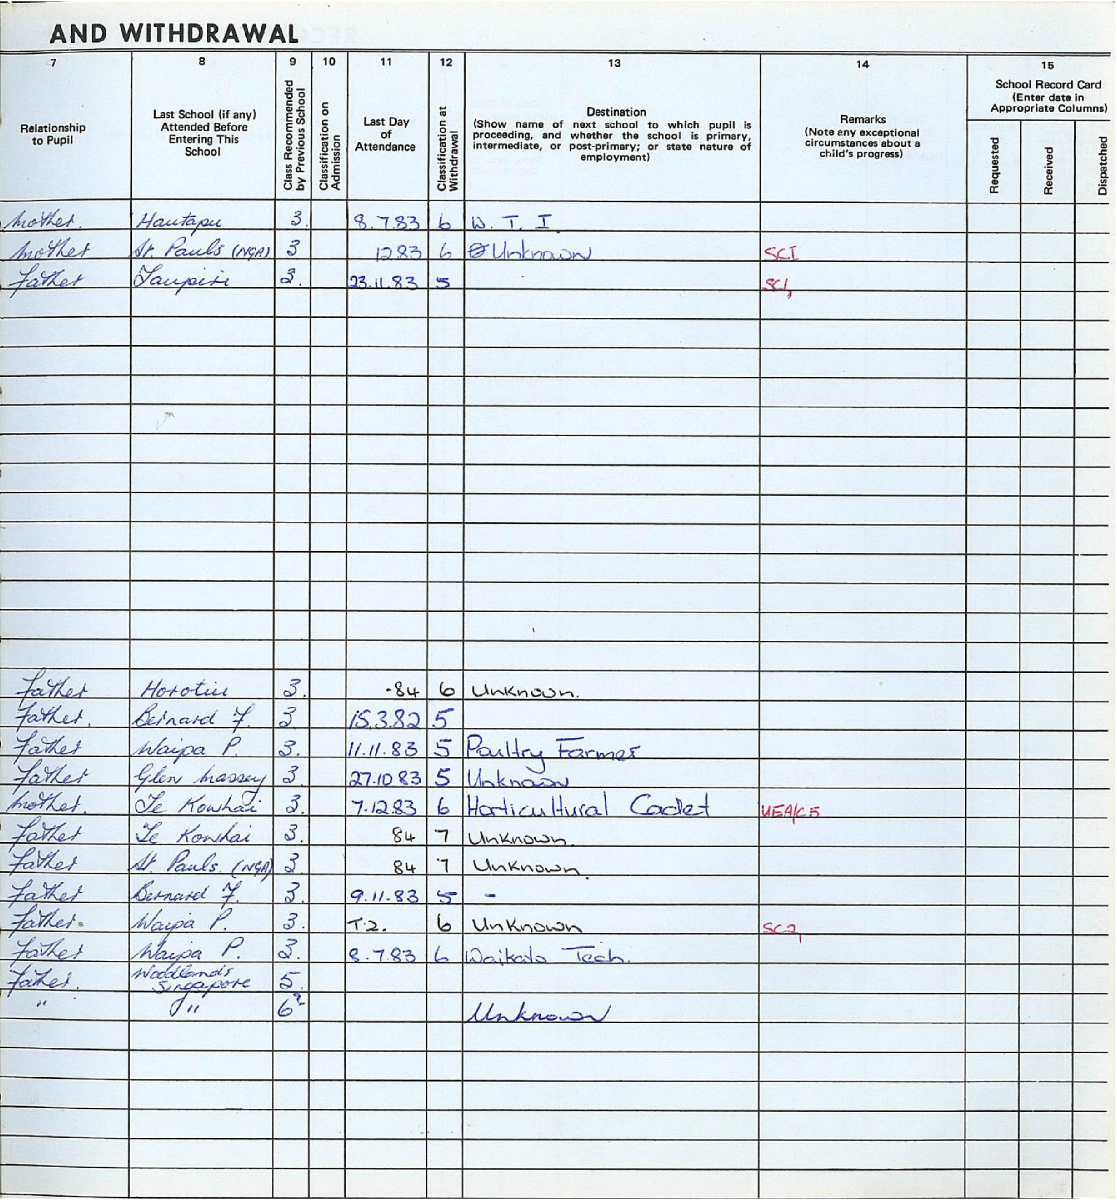 AND WITHDRAWAL
7 8 9 10 11 12 13 14 15
Relationship to Pupil
Last School (if any) Attended Before Entering This School
Class Recommended by Previous School
Classification on Admission
Last Day of Attendance
Classification at Withdrawal
Destination
(Show name of next school to which pupil is proceeding, and whether the school is primary, intermediate, or post-primary; or state nature of employment)
Remarks
(Note any exceptional circumstances about a child's progress)
School Record Card
(Enter date in Appropriate Columns)
Requested
Received
Dispatched
Mother. Hautapu 3. 8.7.83 6 W. T. I.
Mother St. Pauls (NGA) 3 1283 6 Unknown SC1
Father Taupiri 3. 23.11.83 5 SC1,
Father Horotiu 3. -84 6 Unknown.
Father. Bernard F. 3. 15.3.82 5
Father Waipa P. 3. 11.11.83 5 Poultry Farmer
Father Glen Massey 3. 27.10 83 5 Unknown
Mother Te Kowhai 3. 7.12.83 6 Horticultural Cadet UE4/C5
Father Te Kowhai 3. 84 7 Unknown.
Father St Pauls. (NGA) 3. 84 7 Unknown.
Father Bernard F. 3. 9.11.83 5 -
Father. Waipa P. 3. T.2. 6 Unknown SC2,
Father Waipa P. 3. 8.7.83 6 Waikato Tech.
Father. Woodlands Singapore 5.
" " 6 Unknown